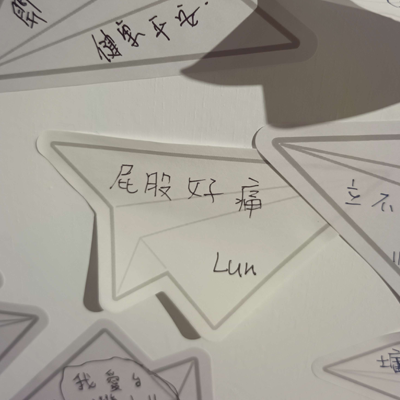 健康平安
屁股好痛
Lun
立不
我愛台